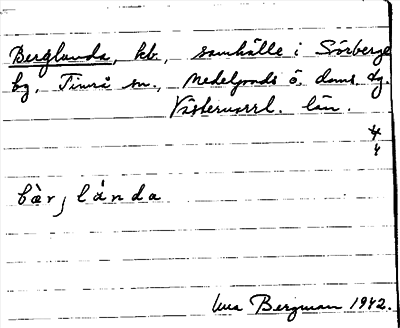 Berglunda, kb., samhälle i Sörberge
by, Timrå sn., Medelpads ö. doms. tg.
Västernorrl. län.
bær, lánda
Bergman 1942.